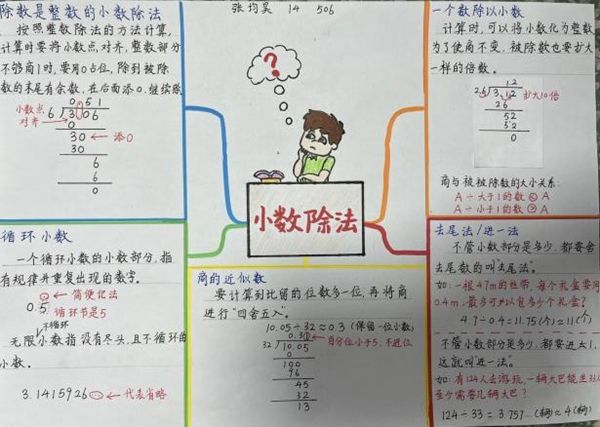 张均昊 14 506
除数是整数的小数除法
按照整数除法的方法计算,
计算时要将小数点,对齐,整数部分
不够商1时,要用0占位,除到被除
数的末尾有余数,在后面添0,继续除
小数点
对齐
0.51
6 3.06
0
30 ← 添0
30
6
6
0
?
小数除法
一个数除以小数
计算时,可以将小数化为整数
为了使商不变,被除数也要扩大
一样的倍数。
12
2.6 3.12 扩大10倍
26
52
52
0
商与被除数的大小关系:
A÷大于1的数<A
A÷小于1的数>A
循环小数
一个循环小数的小数部分,指
有规律并重复出现的数字。
← 简便记法
0.5 循环节是5
不循环
无限小数指没有尽头,且不循环的
小数。
3.1415926… ← 代表省略
商的近似数
要计算到比保留的位数多一位,再将商
进行“四舍五入。
10.05÷32≈0.3 (保留一位小数)
0.31 ← 百分位小于5,不进位
32 10.05
100
96
45
32
13
去尾法/进一法
不管小数部分是多少,都要舍
去尾数的叫“去尾法”。
如:一根4.7m的丝带,每个礼盒要用
0.4m,最多可以包多少个礼盒?
4.7÷0.4=11.75(个)≈11(个)
不管小数部分是多少,都要进去1,
这就叫“进一法”。
如:有124人去游玩,一辆大巴能坐33人
至少需要几辆大巴?
124÷33=3.757…(辆)≈4(辆)